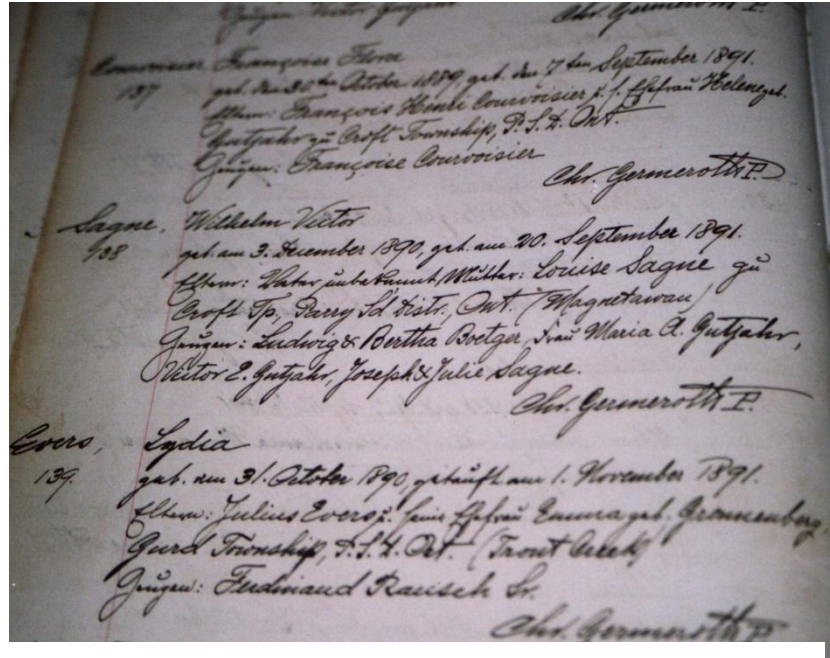 Zeugen: Victor Gutjahr
Chr. Germeroth P.
Courvoisier Françoise Flora
137 geb. den 30ten October 1889, get. den 7ten September 1891.
Eltern: François Henri Courvoisier u. s. Ehefrau Helene geb.
Gutjahr zu Croft Township, P. S. D. Ont.
Zeugen: Françoise Courvoisier
Chr. Germeroth P.
Sagne, Wilhelm Victor
138 geb. am 3. December 1890, get. am 20. September 1891.
Eltern: Vater unbekannt, Mutter: Louise Sagne zu
Croft Tp, Parry Sd Distr., Ont. (Magnetawan)
Zeugen: Ludwig & Bertha Boetger, Frau Maria A. Gutjahr,
Victor E. Gutjahr, Joseph & Julie Sagne.
Chr. Germeroth P.
Evers, Lydia
139. geb. am 31. October 1890, getauft am 1. November 1891.
Eltern: Julius Evers u. seine Ehefrau Emma geb. Gronnenberg,
Gurd Township, P. S. D. Ont. (Trout Creek)
Zeugen: Ferdinand Rausch Sr.
Chr. Germeroth P.